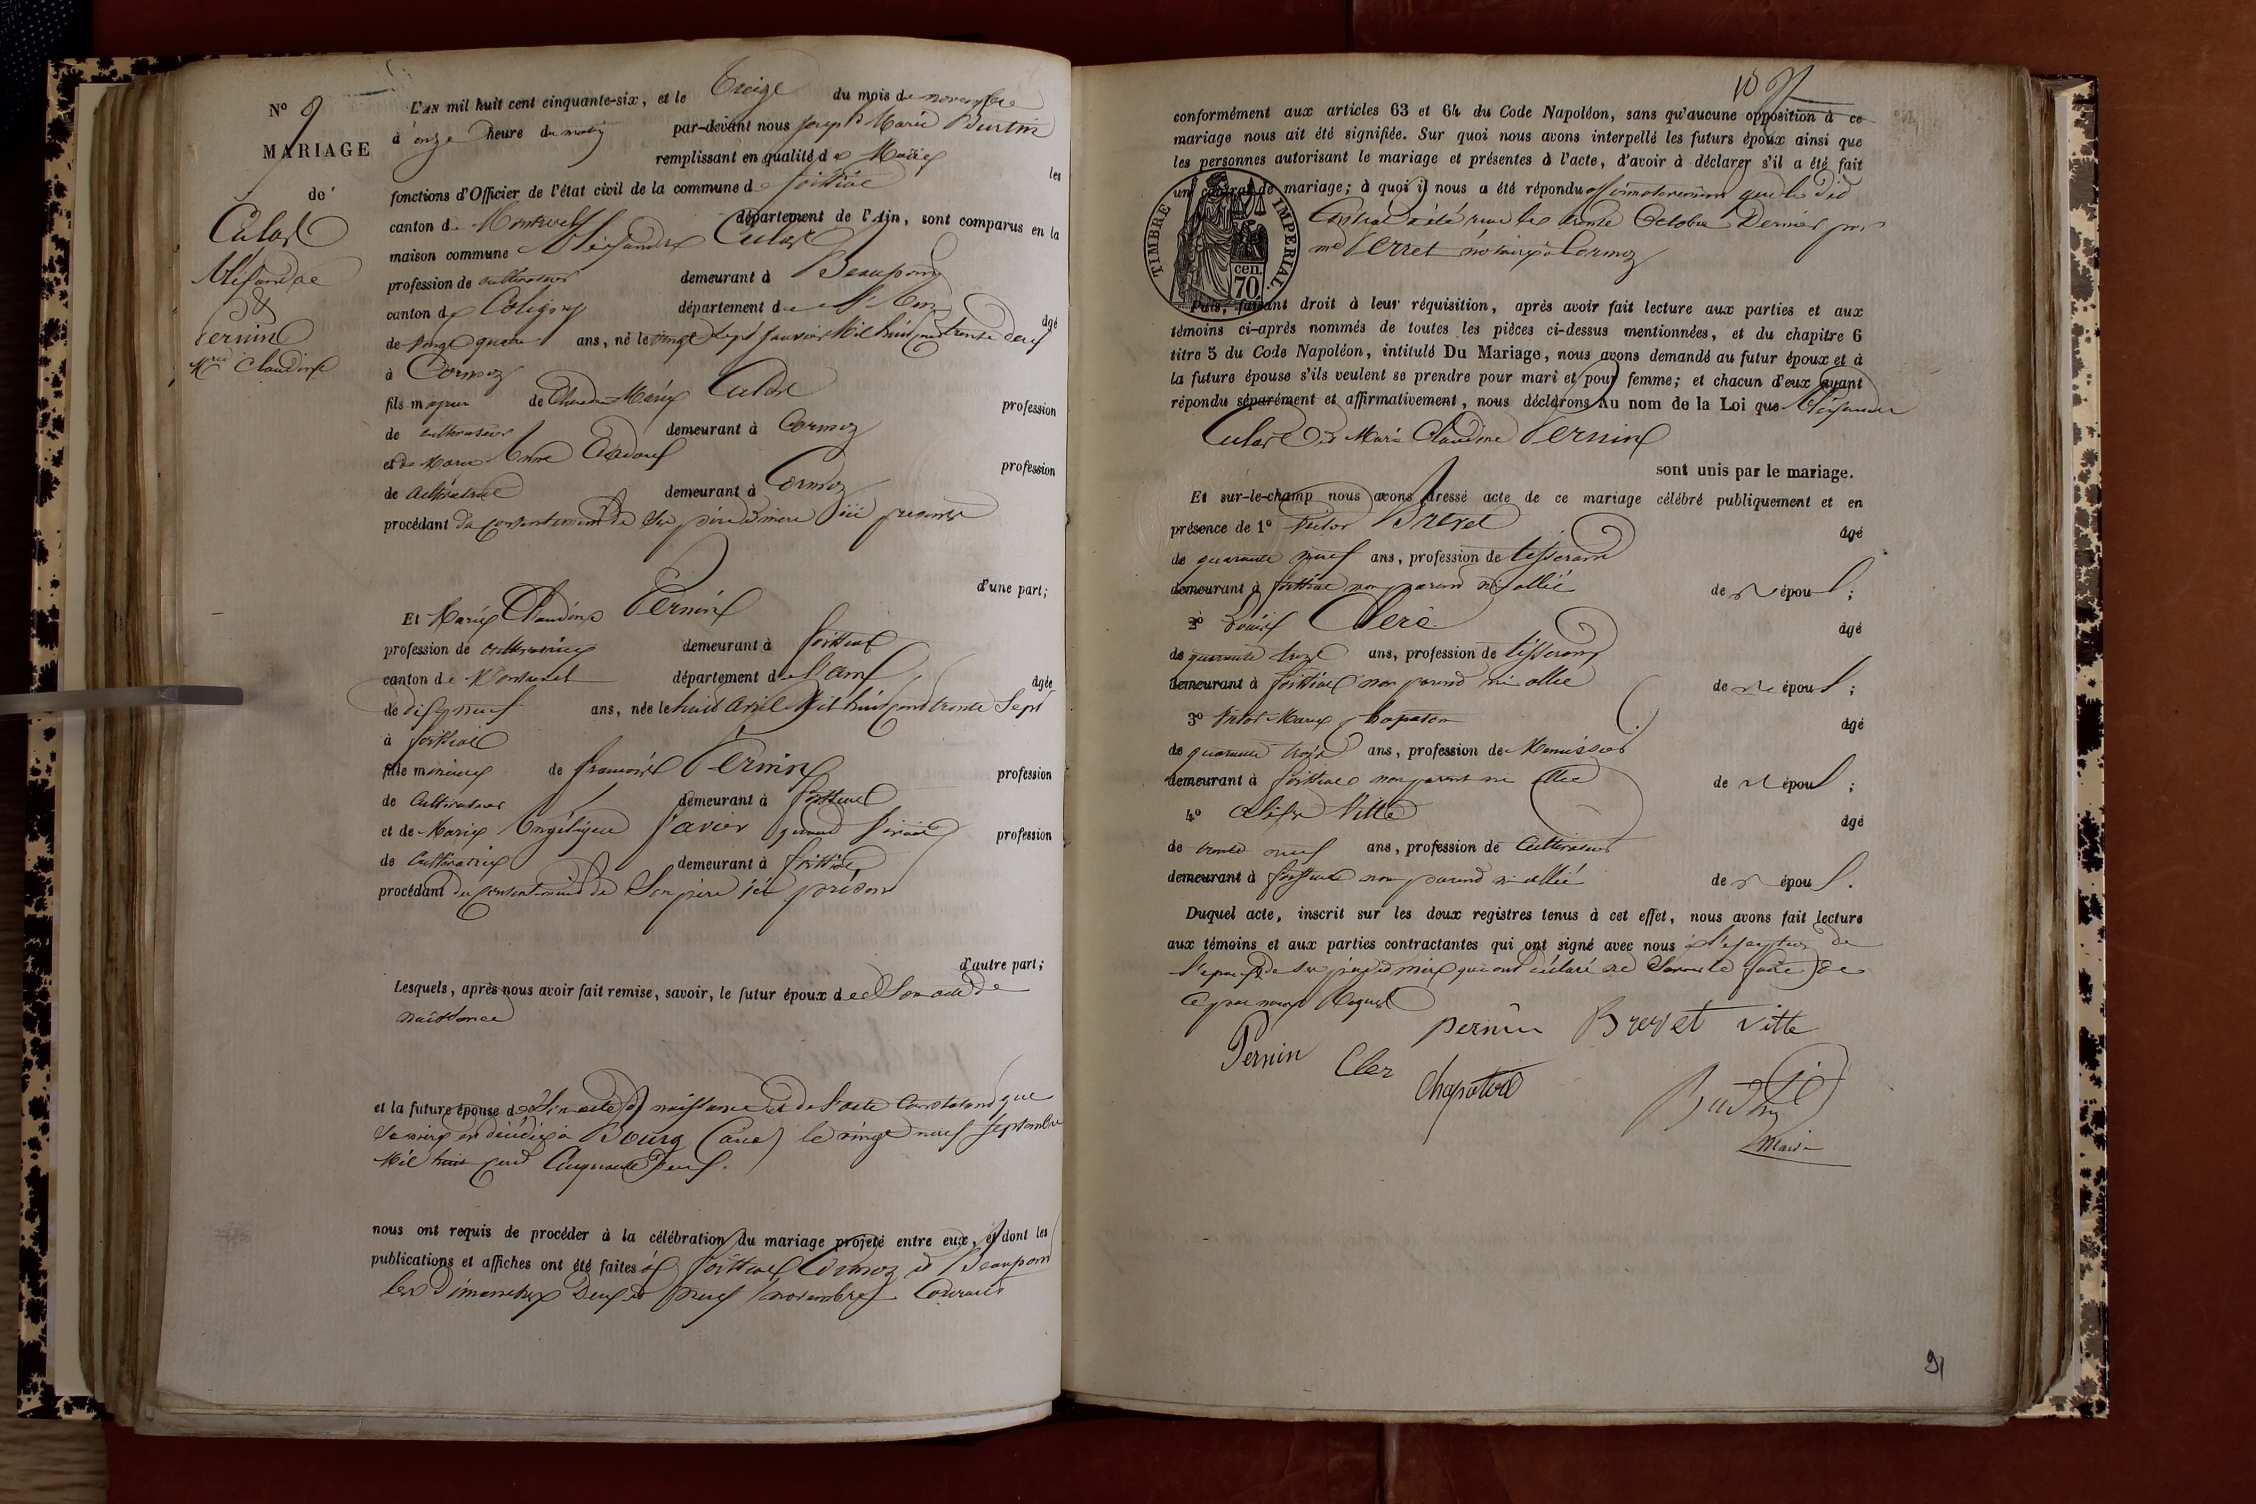 N° 9
MARIAGE
de
Cularé
Alexandre
&
Pernin
Mrie Claudine
L'AN mil huit cent cinquante-six, et le treize du mois de novembre
à onze heure du matin par-devant nous Joseph Marie
remplissant en qualité de Maire les
fonctions d'Officier de l'état civil de la commune de foissiat
canton de Montrevel département de l'Ain, sont comparus en la
maison commune Alexandre Cularé
profession de cultivateur demeurant à Beaupont
canton de Coligny département de l'Ain âgé
de vingt quatre ans, né le vingt sept janvier Mil huit cent trente deux
à Cormoz
fils majeur de Claude Marie Cularé profession
de cultivateur demeurant à Cormoz
et de Marie Anne profession
de cultivatrice demeurant à Cormoz
procédant du consentement de ses père et mère ici présents
d'une part;
Et Marie Claudine Pernin
profession de cultivatrice demeurant à foissiat
canton de Montrevel département de l'ain âgée
de dix neuf ans, née le huit avril Mil huit cent trente sept
à foissiat
fille mineure de françois Pernin profession
de cultivateur demeurant à foissiat
et de Marie Angélique profession
de cultivatrice demeurant à foissiat
procédant du consentement de Son père ici présent
d'autre part;
Lesquels, après nous avoir fait remise, savoir, le futur époux de Son acte de
naissance
et la future épouse de Son acte de naissance et de l'acte constatant que
sa mère est décédée à Bourg (ain) le vingt neuf Septembre
Mil huit cent Cinquante
nous ont requis de procéder à la célébration du mariage projeté entre eux, et dont les
publications et affiches ont été faites à foissiat Cormoz et Beaupont
les Dimanches Deux et neuf novembre Courant
10
conformément aux articles 63 et 64 du Code Napoléon, sans qu'aucune opposition à ce
mariage nous ait été signifiée. Sur quoi nous avons interpellé les futurs époux ainsi que
les personnes autorisant le mariage et présentes à l'acte, d'avoir à déclarer s'il a été fait
un contrat de mariage; à quoi il nous a été répondu affirmativement que le dit
Contrat a été reçu le trente Octobre Dernier par
me Perret notaire à Cormoz
TIMBRE IMPERIAL.
70 cen.
Puis, faisant droit à leur réquisition, après avoir fait lecture aux parties et aux
témoins ci-après nommés de toutes les pièces ci-dessus mentionnées, et du chapitre 6
titre 5 du Code Napoléon, intitulé Du Mariage, nous avons demandé au futur époux et à
la future épouse s'ils veulent se prendre pour mari et pour femme; et chacun d'eux ayant
répondu séparément et affirmativement, nous déclarons Au nom de la Loi que Alexandre
Cularé et Marie Claudine Pernin
sont unis par le mariage.
Et sur-le-champ nous avons dressé acte de ce mariage célébré publiquement et en
présence de 1° Victor Brevet âgé
de quarante neuf ans, profession de tisserand
demeurant à foissiat non parent ni allié de époux;
2° Clerc âgé
de quarante treize ans, profession de tisserand
demeurant à foissiat non parent ni allié de époux;
3° Marie âgé
de quarante trois ans, profession de Menuisier
demeurant à foissiat non parent ni allié de époux;
4° Vitte âgé
de trente neuf ans, profession de Cultivateur
demeurant à foissiat non parent ni allié de époux.
Duquel acte, inscrit sur les deux registres tenus à cet effet, nous avons fait lecture
aux témoins et aux parties contractantes qui ont signé avec nous à l'exception de
l'époux et de ses père et mère qui ont déclaré ne Savoir le faire de
ce par nous Requis
Pernin pernin Brevet vitte
Cler
maire
91